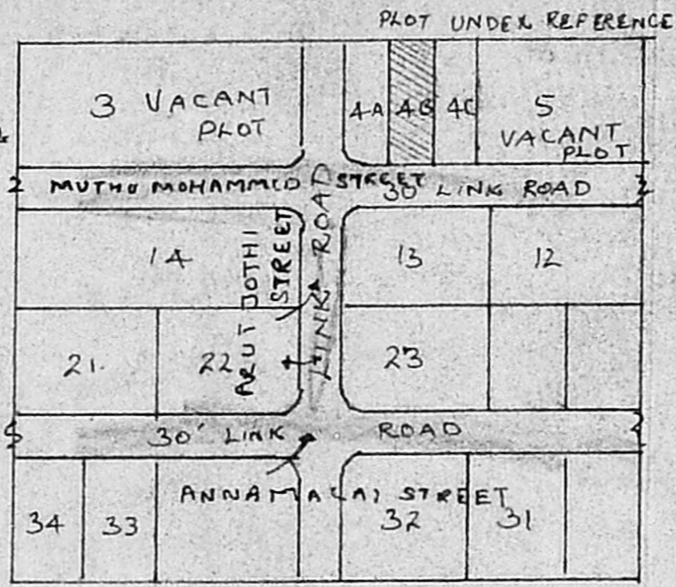 PLOT UNDER REFERENCE
3 VACANT PLOT
4A 4B 4C
5 VACANT PLOT
MUTHU MOHAMMED STREET 30' LINK ROAD
14
ARUTJOTHI STREET
LINK ROAD
13 12
21 22 23
30' LINK ROAD
ANNAMALAI STREET
34 33 32 31